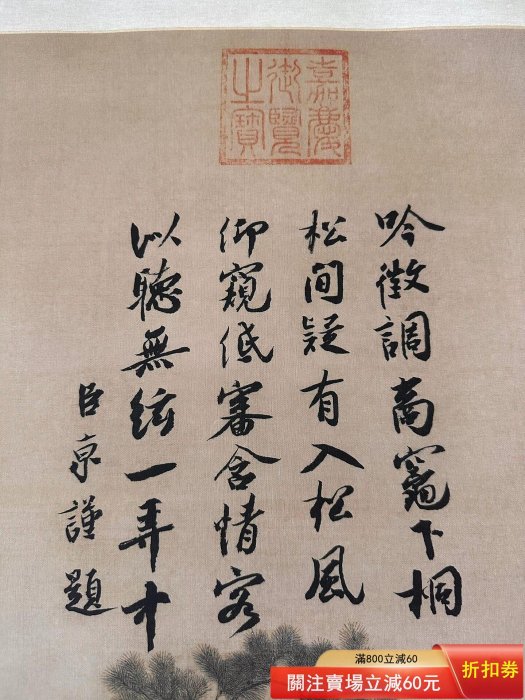 嘉慶
御覽
之寶
吟徵調商竈下桐
松間疑有入松風
仰窺低審含情客
以聽無絃一弄中
臣京謹題
滿800立減60
關注賣場立減60元
折扣券